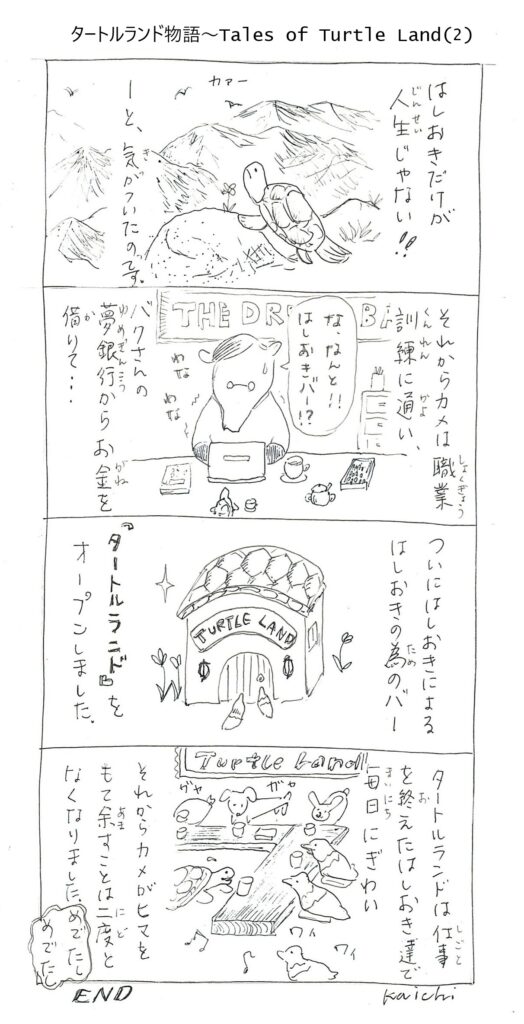 タートルランド物語～Tales of Turtle Land(2)
はしおきだけが
人生じゃない!!
じんせい
ーと、気がついたのです。
き
カァー
それからカメは職業
しょくぎょう
訓練に通い、
くんれん
かよ
THE DR
BA
な、なんと!!
はしおきバー!?
わな
わな
バクさんの
夢銀行からお金を
ゆめぎんこう
かね
借りて…
か
ついにはしおきによる
はしおきの為のバー
ため
TURTLE LAND
『タートルランド』を
オープンしました。
タートルランドは仕事
しごと
を終えたはしおき達で
お
毎日にぎわい
まいにち
Turtle Land
ガヤ
ガヤ
ワイ
ワイ
それからカメがヒマを
もて余すことは二度と
あま
にど
なくなりました。
めでたし
めでたし
END
Kaichi